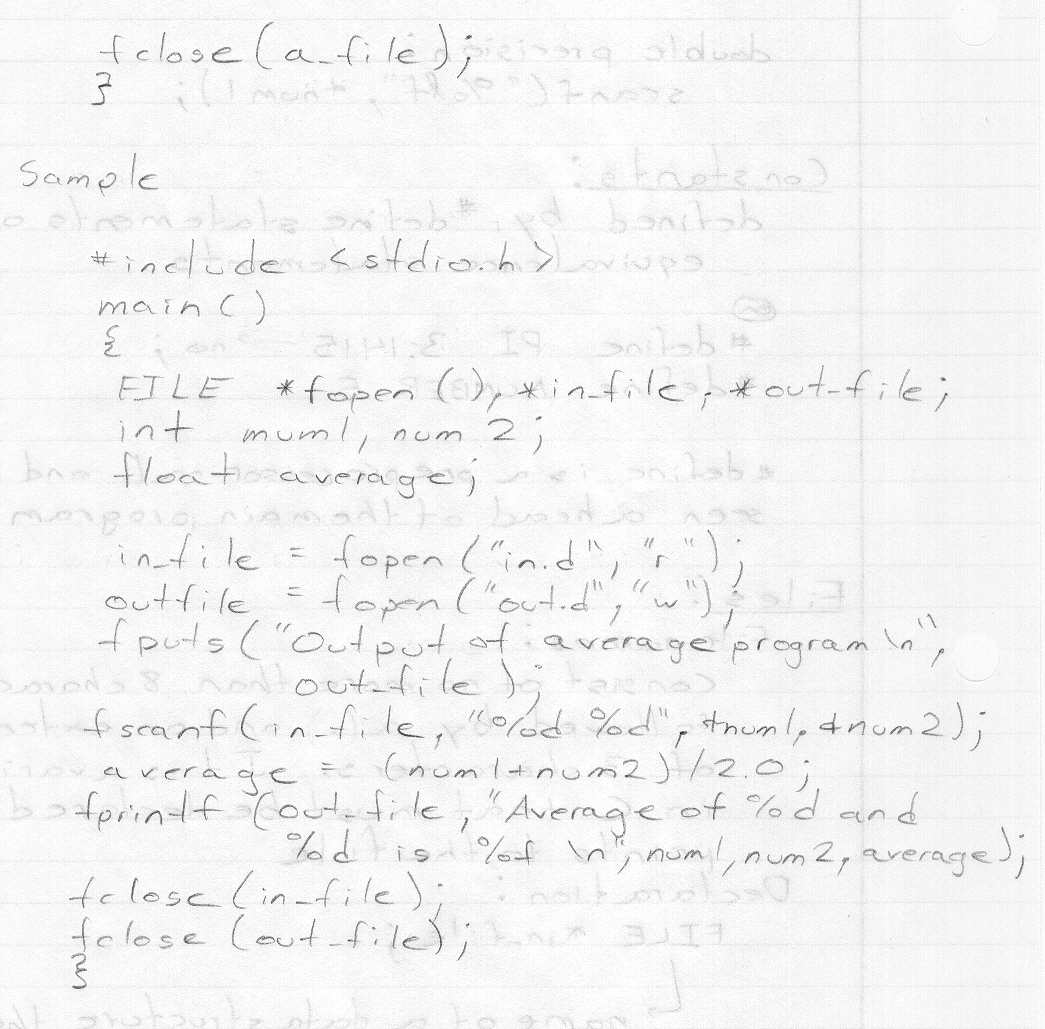 fclose (a_file);
}
Sample
#include <stdio.h>
main ()
{
FILE *fopen (), *in_file, *out_file;
int mum1, num 2;
float average;
in_file = fopen ("in.d", "r");
outfile = fopen ("out.d", "w");
fputs ("Output of average program \n",
out_file);
fscanf (in_file, "%d %d", &num1, &num2);
average = (num1+num2)/2.0;
fprintf (out_file, "Average of %d and
%d is %f \n", num1, num2, average);
fclose (in_file);
fclose (out_file);
}